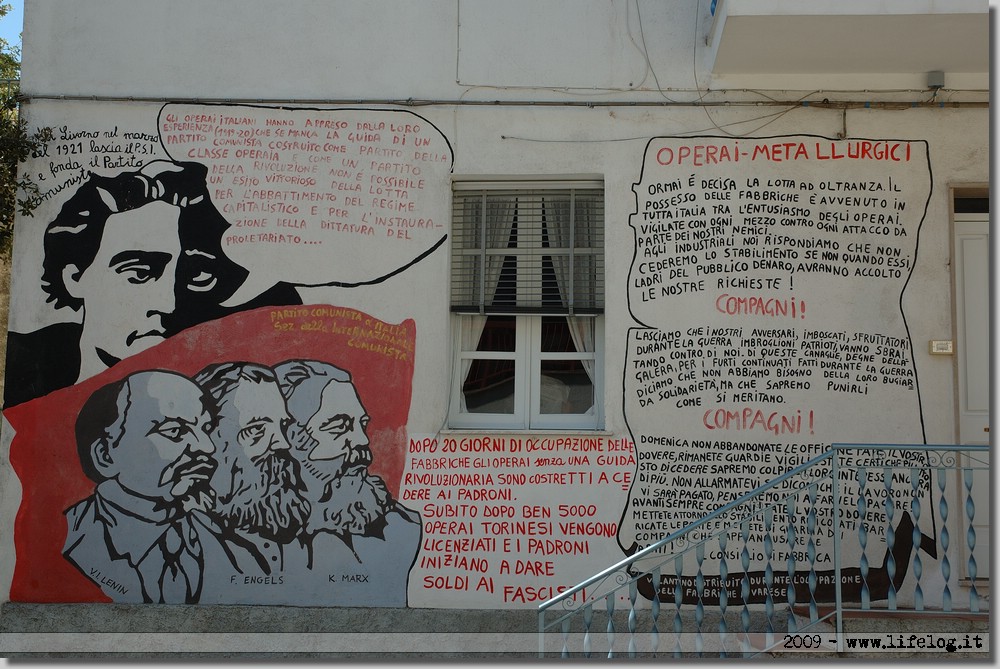 Livorno nel marzo
del 1921 lascia il P.S.I.
e fonda il Partito
Comunista
GLI OPERAI ITALIANI HANNO APPRESO DALLA LORO
ESPERIENZA (1919-20) CHE SE MANCA LA GUIDA DI UN
PARTITO COMUNISTA COSTRUITO COME PARTITO DELLA
CLASSE OPERAIA E COME UN PARTITO
DELLA RIVOLUZIONE NON È POSSIBILE
UN ESITO VITTORIOSO DELLA LOTTA
PER L'ABBATTIMENTO DEL REGIME
CAPITALISTICO E PER L'INSTAURA-
ZIONE DELLA DITTATURA DEL
PROLETARIATO....
PARTITO COMUNISTA D'ITALIA
Sez. della Internazionale
COMUNISTA
V.I. LENIN
F. ENGELS
K. MARX
DOPO 20 GIORNI DI OCCUPAZIONE DELLE
FABBRICHE GLI OPERAI senza UNA GUIDA
RIVOLUZIONARIA SONO COSTRETTI A CE
DERE AI PADRONI.
SUBITO DOPO BEN 5000
OPERAI TORINESI VENGONO
LICENZIATI E I PADRONI
INIZIANO A DARE
SOLDI AI FASCISTI....
OPERAI-METALLURGICI
ORMAI É DECISA LA LOTTA AD OLTRANZA. IL
POSSESSO DELLE FABBRICHE È AVVENUTO IN
TUTTA ITALIA TRA L'ENTUSIASMO DEGLI OPERAI.
VIGILATE CON OGNI MEZZO CONTRO OGNI ATTACCO DA
PARTE DEI NOSTRI NEMICI.
AGLI INDUSTRIALI NOI RISPONDIAMO CHE NON
CEDEREMO LO STABILIMENTO SE NON QUANDO ESSI,
LADRI DEL PUBBLICO DENARO, AVRANNO ACCOLTO
LE NOSTRE RICHIESTE!
COMPAGNI!
LASCIAMO CHE I NOSTRI AVVERSARI, IMBOSCATI, SFRUTTATORI
DURANTE LA GUERRA IMBROGLIONI PATRIOTI, VANNO SBRAI
TANDO CONTRO DI NOI. DI QUESTE CANAGLIE, DEGNE DELLA
GALERA, PER I FURTI CONTINUATI FATTI DURANTE LA GUERRA
DICIAMO CHE NON ABBIAMO BISOGNO DELLA LORO BUGIAR
DA SOLIDARIETÀ, MA CHE SAPREMO PUNIRLI
COME SI MERITANO.
COMPAGNI!
DOMENICA NON ABBANDONATE LE OFFICINE
DOVERE, RIMANETE GUARDIE VIGILI
STO DI CEDERE SAPREMO COLPIRE
DI PIÙ. NON ALLARMATEVI SE DICONO
VI SARÀ PAGATO, PENSEREMO NOI A FAR
AVANTI SEMPRE COMPAGNI
IL CONSIGLIO DI FABBRICA
VOLANTINO DISTRIBUITO DURANTE L'OCCUPAZIONE
DELLE FABBRICHE VARESE
2009 - www.lifelog.it